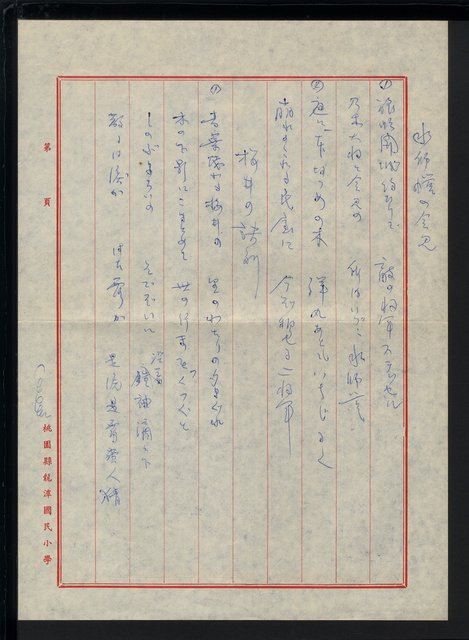 水師營の会見
(1) 旅順開城約成りて 敵の将軍ステッセル
乃木大将と会見の 所はいづこ水師營
(2) 庭に一本なつめの木 弾丸あともいちじるく
崩れ残れる民屋に 今ぞ相見る二将軍
桜井の訣別
(1) 青葉茂れる桜井の 里のわたりの夕まぐれ
木の下影にこまとめて 世の行末をつくづくと
しのぶ鎧の そでの
散るは涙か はた露か
第 頁
桃園縣龍潭國民小學